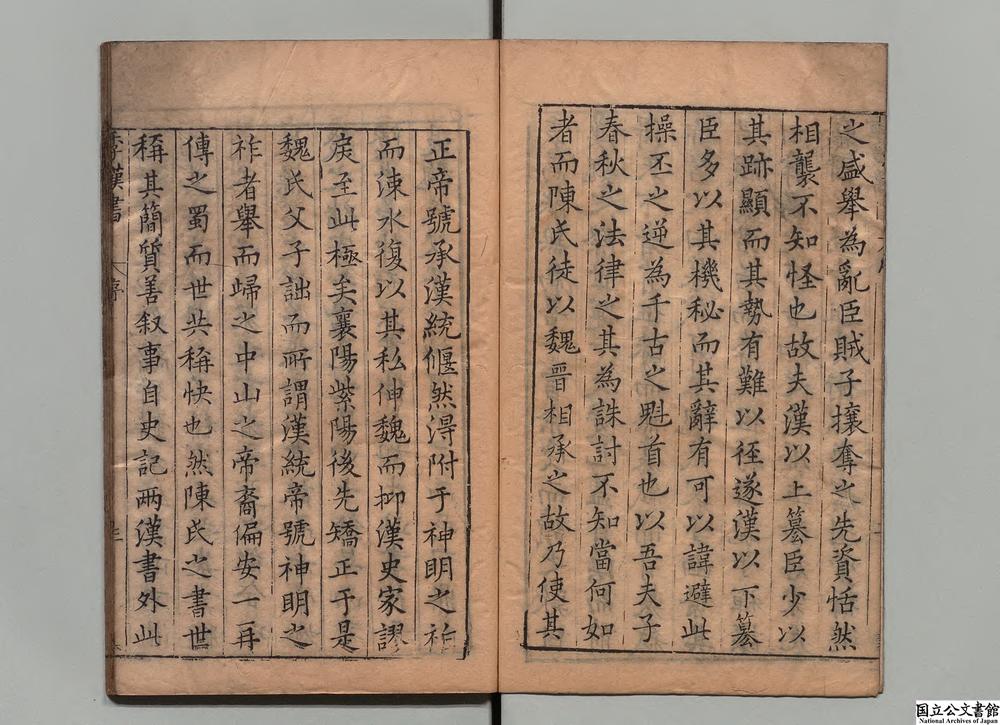 之盛舉為亂臣賊子攘奪之先資恬然
相襲不知怪也故夫漢以上篡臣少以
其跡顯而其勢有難以徑遂漢以下篡
臣多以其機秘而其辭有可以諱避此
操丕之逆為千古之魁首也以吾夫子
春秋之法律之其為誅討不知當何如
者而陳氏徒以魏晉相承之故乃使其
正帝號承漢統偃然淂附于神明之祚
而涑水復以其私伸魏而抑漢史家謬
戾至此極矣襄陽紫陽後先矯正于是
魏氏父子詘而所謂漢統帝號神明之
祚者舉而歸之中山之帝裔偏安一再
傳之蜀而世共稱快也然陳氏之書世
稱其簡質善叙事自史記兩漢書外此
季漢書
序
三
国立公文書館
National Archives of Japan